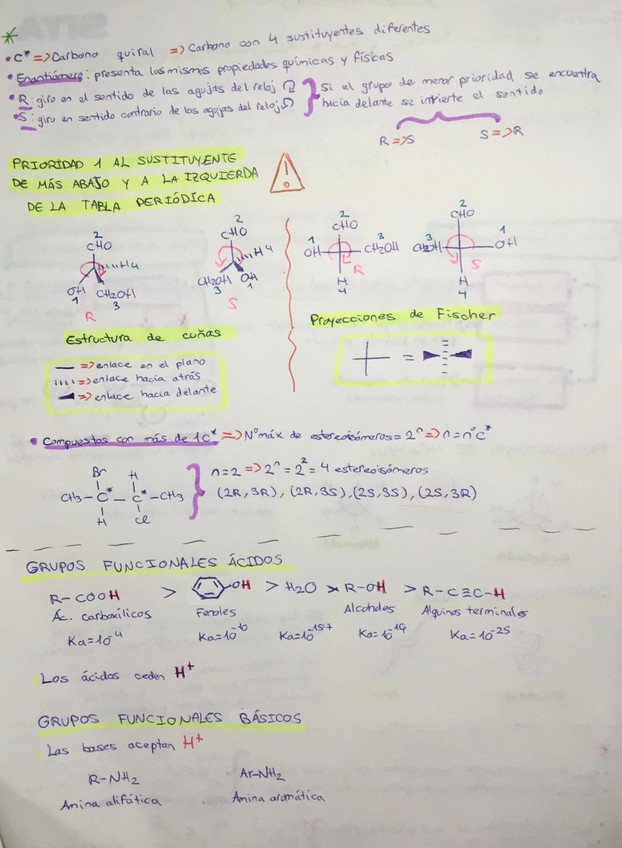 * 
• C* => Carbono quiral => Carbono con 4 sustituyentes diferentes
• Enantiómero: presenta las mismas propiedades químicas y físicas
• R: giro en el sentido de las agujas del reloj ↻ } Si el grupo de menor prioridad se encuentra
• S: giro en sentido contrario de las agujas del reloj ↺ hacia delante se invierte el sentido
R => S S => R
PRIORIDAD 1 AL SUSTITUYENTE
DE MÁS ABAJO Y A LA IZQUIERDA
DE LA TABLA PERIÓDICA
2 CHO H 4 OH 1 CH2OH 3 R
2 CHO H 4 CH2OH 3 OH 1 S
2 CHO 1 OH 3 CH2OH H 4 R
2 CHO 3 CH2OH 1 OH H 4 S
Estructura de cuñas
Proyecciones de Fischer
=
— => enlace en el plano
ıııı => enlace hacia atrás
◄ => enlace hacia delante
• Compuestos con más de 1C* => Nº máx de estereoisómeros = 2ⁿ => n = nº C*
Br H
CH3 – C* – C* – CH3
H Cl
n = 2 => 2ⁿ = 2² = 4 estereoisómeros
(2R, 3R), (2R, 3S), (2S, 3S), (2S, 3R)
GRUPOS FUNCIONALES ÁCIDOS
R-COOH > OH > H2O > R-OH > R-C≡C-H
Ác. carboxílicos Fenoles Alcoholes Alquinos terminales
Ka=10⁻⁴ Ka=10⁻¹⁰ Ka=10⁻¹⁵'⁷ Ka=10⁻¹⁹ Ka=10⁻²⁵
Los ácidos ceden H⁺
GRUPOS FUNCIONALES BÁSICOS
Las bases aceptan H⁺
R-NH2 Ar-NH2
Amina alifática Amina aromática